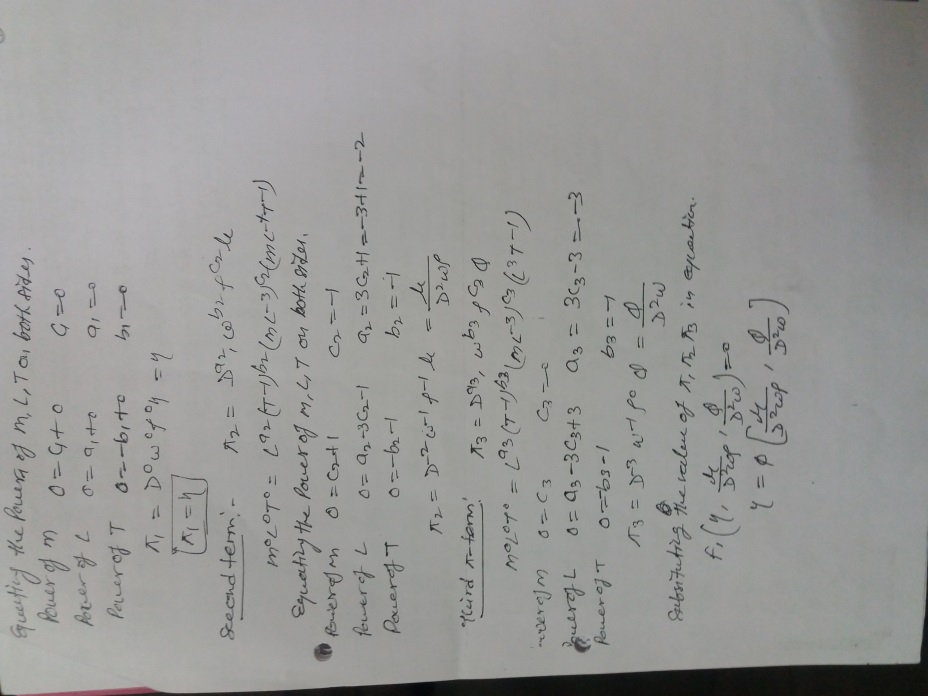 Equating the Powers of M, L, T on both sides.
Power of M 0 = C1+0 C1=0
Power of L 0 = a1+0 a1=0
Power of T 0 = -b1+0 b1=0
π1 = D⁰ω⁰ρ⁰η = η
π1 = η
Second term:- π2 = Dᵃ², ωᵇ² ρᶜ² μ
M⁰L⁰T⁰ = Lᵃ²(T-1)ᵇ²(ML-3)ᶜ²(ML-1T-1)
Equating the Power of M, L, T on both sides.
Power of M 0 = C2+1 C2=-1
Power of L 0 = a2-3C2-1 a2 = 3C2+1 = -3+1 = -2
Power of T 0 = -b2-1 b2 = -1
π2 = D-2 ω-1 ρ-1 μ = μ/D²ωρ
Third π-term: π3 = Dᵃ³, ωᵇ³ ρᶜ³ Q
M⁰L⁰T⁰ = Lᵃ³(T-1)ᵇ³(ML-3)ᶜ³(L³T-1)
ower of M 0 = C3 C3=0
Power of L 0 = a3-3C3+3 a3 = 3C3-3 = -3
Power of T 0 = -b3-1 b3=-1
π3 = D-3 ω-1 ρ0 Q = Q/D²ω
Substituting the value of π1 π2 π3 in equation.
f1(η, μ/D²ωρ, Q/D²ω) = 0
η = φ[μ/D²ωρ, Q/D²ω]